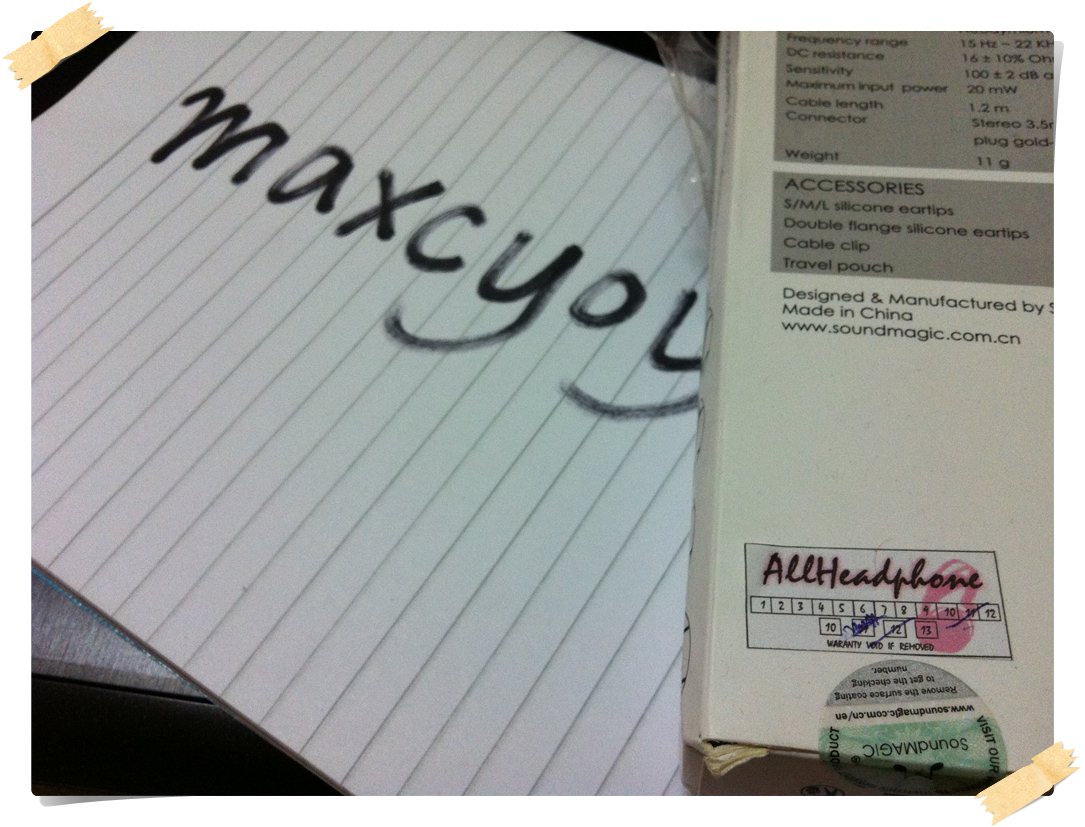 maxcyou
Frequency range 15 Hz – 22 KH
DC resistance 16 ± 10% Oh
Sensitivity 100 ± 2 dB a
Maximum input power 20 mW
Cable length 1.2 m
Connector Stereo 3.5
plug gold-
Weight 11 g
ACCESSORIES
S/M/L silicone eartips
Double flange silicone eartips
Cable clip
Travel pouch
Designed & Manufactured by S
Made in China
www.soundmagic.com.cn
AllHeadphone
1 2 3 4 5 6 7 8 9 10 11 12
10 12 13
WARANTY VOID IF REMOVED
Remove the surface coating
to get the checking
number.
www.soundmagic.com.cn/en
VISIT OUR
SoundMAGIC
ODUCT